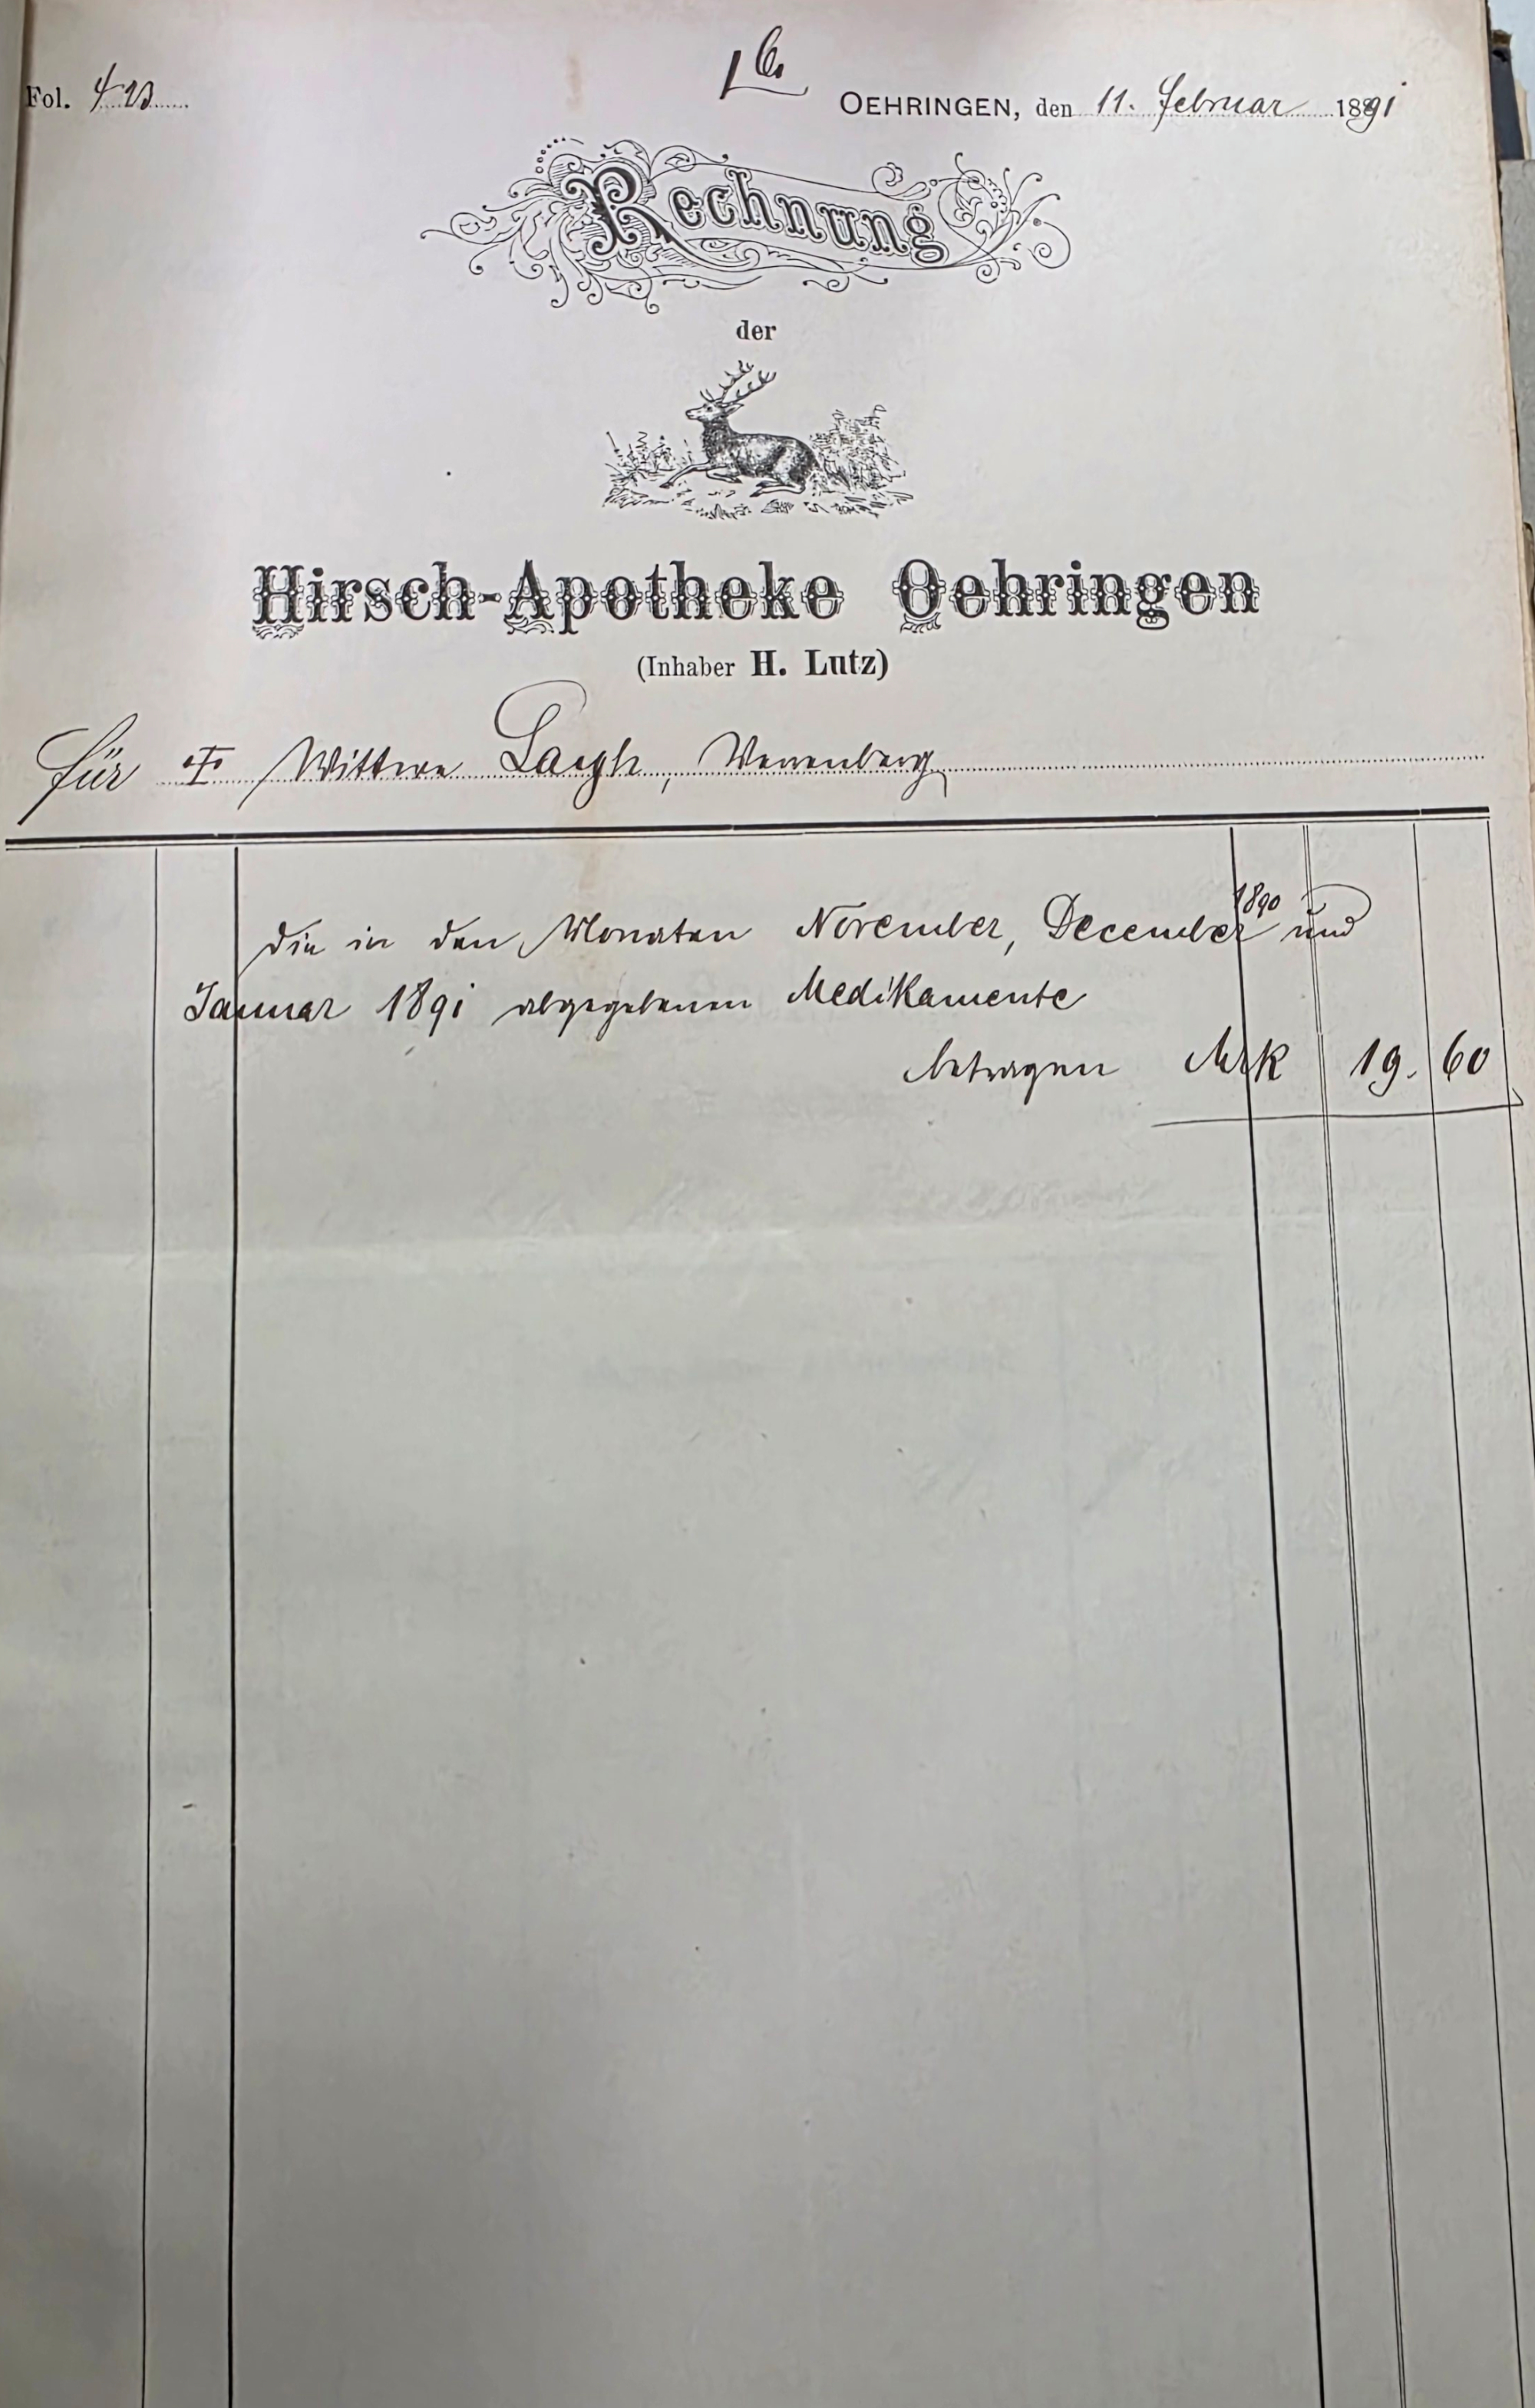 Fol. 423
OEHRINGEN, den 11. Februar 1891
Rechnung
der
Hirsch-Apotheke Oehringen
(Inhaber H. Lutz)
für Wittwe
die in den Monaten November, December 1890 und
Januar 1891 abgegebenen Medikamente
betragen Mk 19. 60